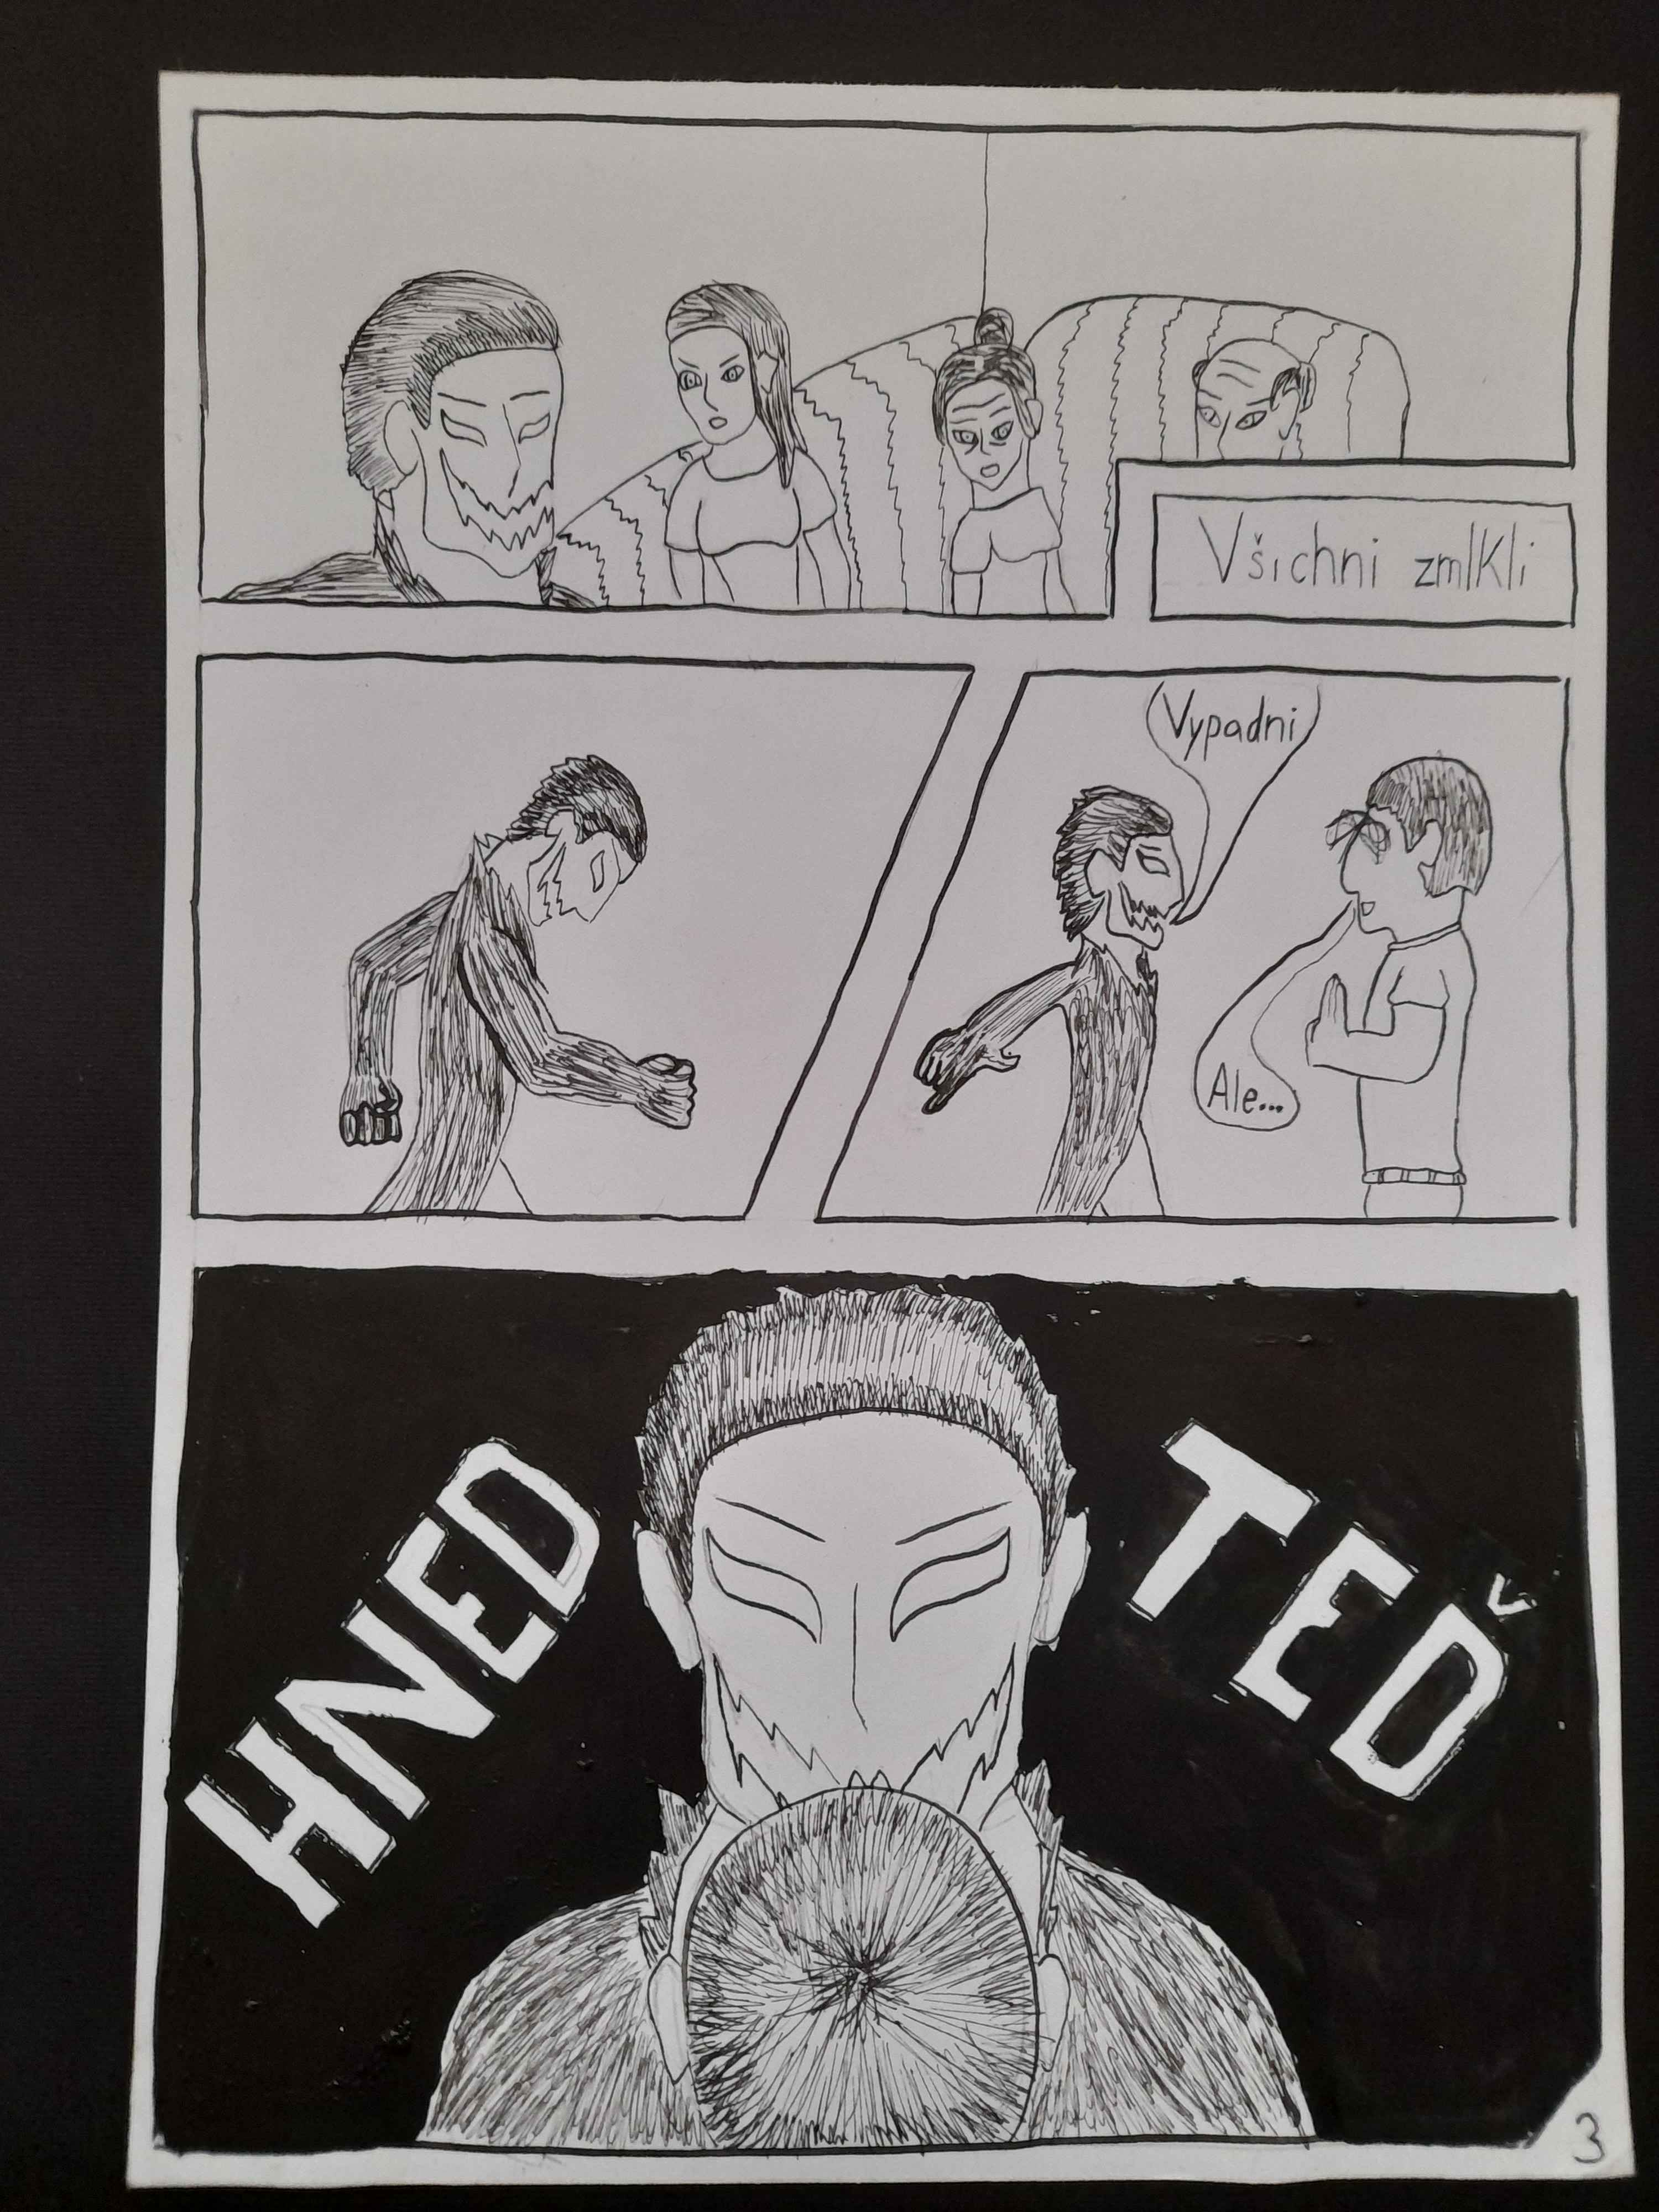 Všichni zmlkli
Vypadni
Ale...
HNED
TEĎ
3